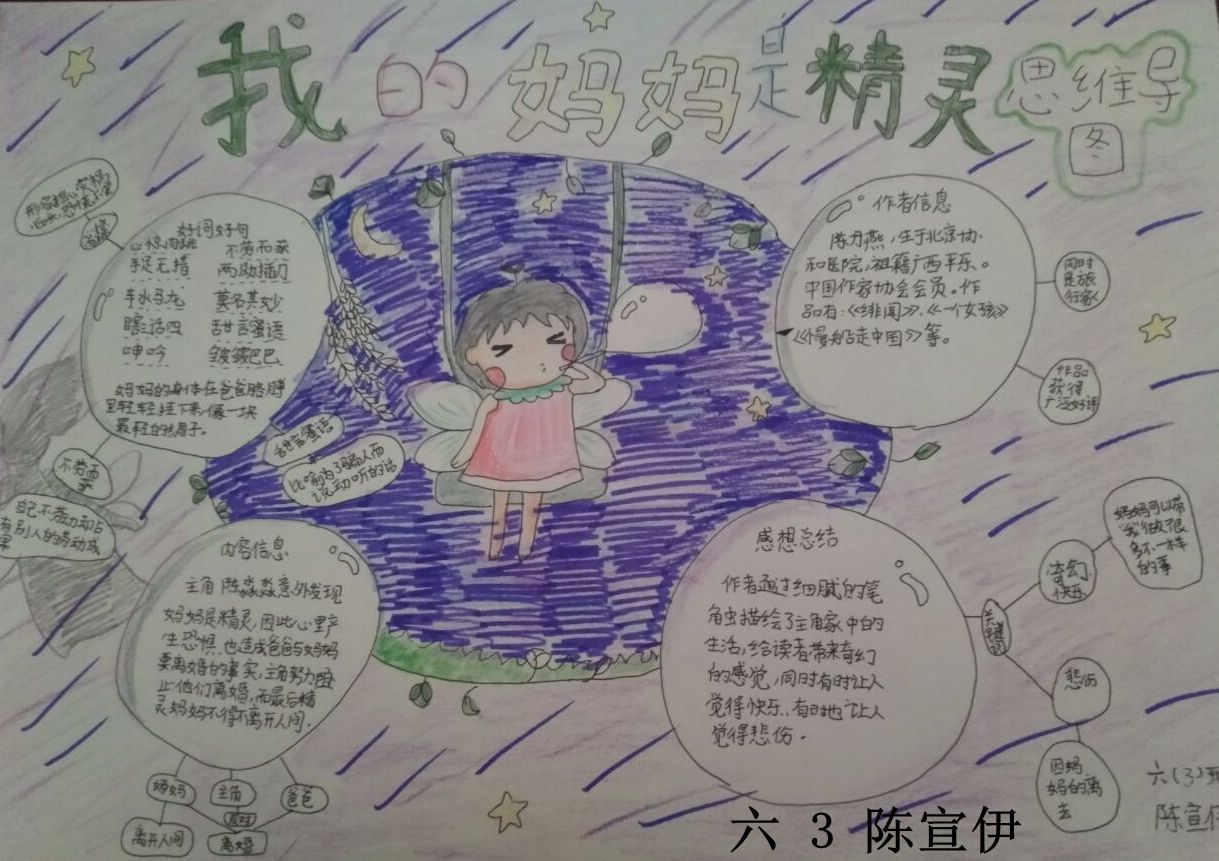 我的妈妈是精灵
思维导
图
好词好句
心惊肉跳 不劳而获
手足无措 两助插刀
车水马龙 莫名其妙
瞎话四 甜言蜜语
呻吟 皱皱巴巴
妈妈的身体在爸爸胳膊
里轻轻挂下来,像一块
最轻的绸子。
不劳而
自己不劳动却占
有别人的劳动成
果
甜言蜜语
比喻为了骗人而
说动听的话
作者信息
陈丹燕,生于北京协
和医院,祖籍广西平乐。
中国作家协会会员。作
品有:《绯闻》、《一个女孩》
《慢船去中国》等。
同时
是旅
行家
作品
获得
广泛好评
内容信息
主角陈淼淼意外发现
妈妈是精灵,因此心里产
生恐惧,也造成爸爸与妈妈
要离婚的事实,主角努力阻
止他们离婚,而最后精
灵妈妈不得不离开人间.
妈妈
主角
爸爸
离开人间
离婚
感想总结
作者通过细腻的笔
触描绘了主角家中的
生活,给读者带来奇幻
的感觉,同时有时让人
觉得快乐,有时也让人
觉得悲伤.
关键词
奇幻
快乐
妈妈可以带
我做很
多不一样
的事
悲伤
因妈
妈的离
去
六(3)班
陈宣伊
六 3 陈宣伊